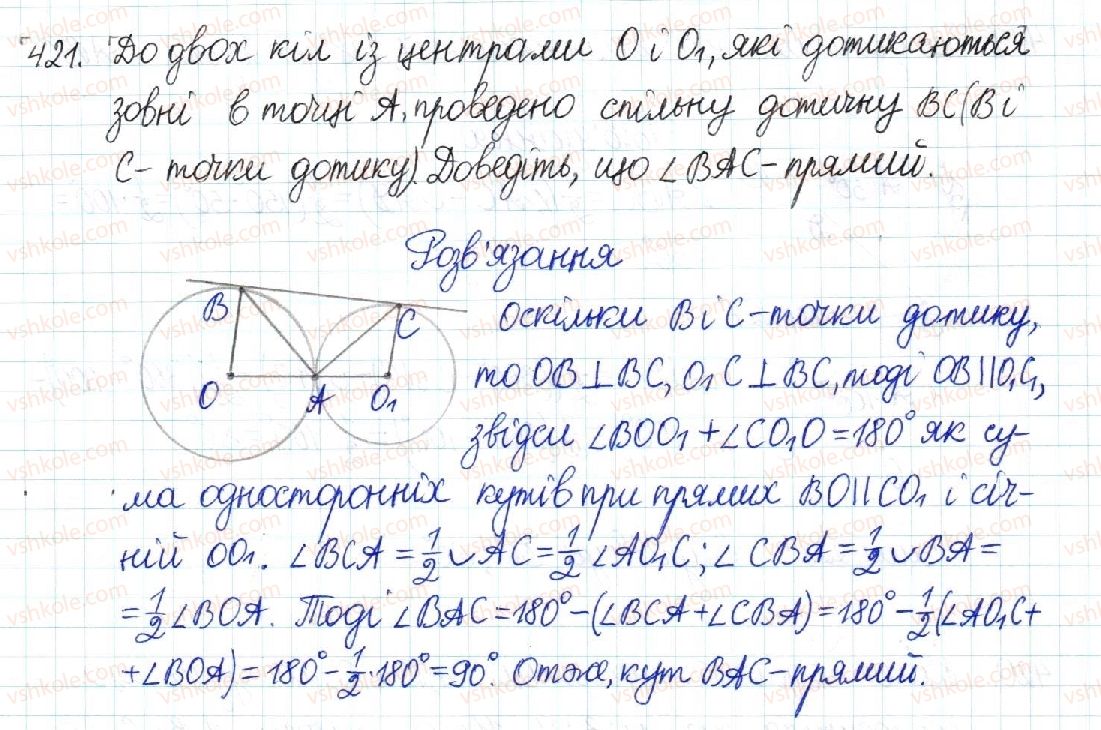 421. До двох кіл із центрами O і O₁, які дотикаються
зовні в точці A, проведено спільну дотичну BC (B і
C - точки дотику). Доведіть, що ∠BAC - прямий.
Розв'язання
B
C
O
A
O₁
Оскільки B і C - точки дотику,
то OB⊥BC, O₁C⊥BC, тоді OB||O₁C₁,
звідси ∠BOO₁+∠CO₁O=180° як су-
ма односторонніх кутів при прямих BO||CO₁ і січ-
ній OO₁. ∠BCA = 1/2 ∪AC = 1/2 ∠AO₁C; ∠CBA = 1/2 ∪BA =
= 1/2 ∠BOA. Тоді ∠BAC = 180° - (∠BCA + ∠CBA) = 180° - 1/2 (∠AO₁C +
+ ∠BOA) = 180° - 1/2 · 180° = 90°. Отже, кут BAC - прямий.
vshkole.com